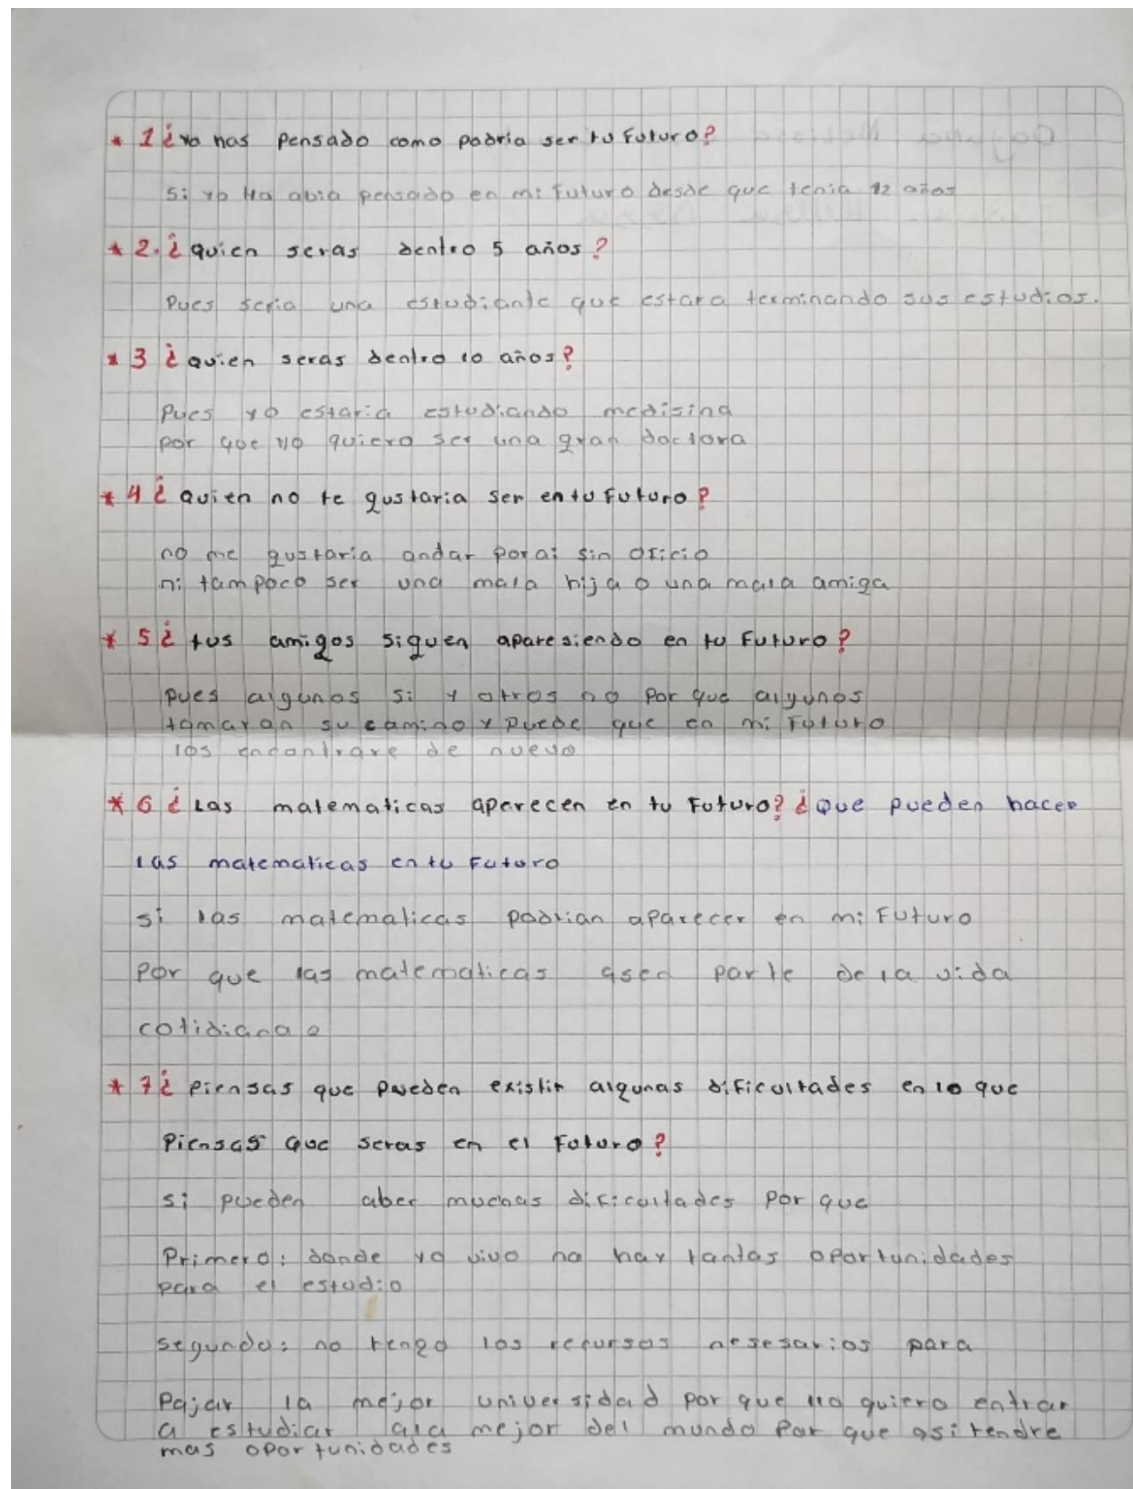 * 1 ¿ya has pensado como podria ser tu futuro?
si yo Ha abia pensado en mi futuro desde que tenia 12 años
* 2. ¿quien seras dentro 5 años?
Pues seria una estudiante que estara terminando sus estudios.
* 3 ¿quien seras dentro 10 años?
Pues yo estaria estudiando medisina
por que yo quiero ser una gran doctora
* 4 ¿quien no te gustaria ser en tu futuro?
no me gustaria andar porai sin oficio
ni tampoco ser una mala hija o una mala amiga
* 5 ¿tus amigos siguen aparesiendo en tu futuro?
pues algunos si y otros no por que algunos
tomaran su camino y puede que en mi futuro
los encontrare de nuevo
* 6 ¿Las matematicas aperecen en tu futuro? ¿que pueden hacer
las matematicas en tu futuro
si las matematicas podrian aparecer en mi futuro
por que las matematicas asen parte de la vida
cotidiana
* 7 ¿Piensas que pueden existir algunas dificultades en lo que
piensas que seras en el futuro?
si pueden aber muchas dificultades por que
Primero: donde yo vivo no hay tantas oportunidades
para el estudio
segundo: no tengo los recursos nesesarios para
Pajar la mejor universidad por que yo quiero entrar
a estudiar ala mejor del mundo por que asi tendre
mas oportunidades